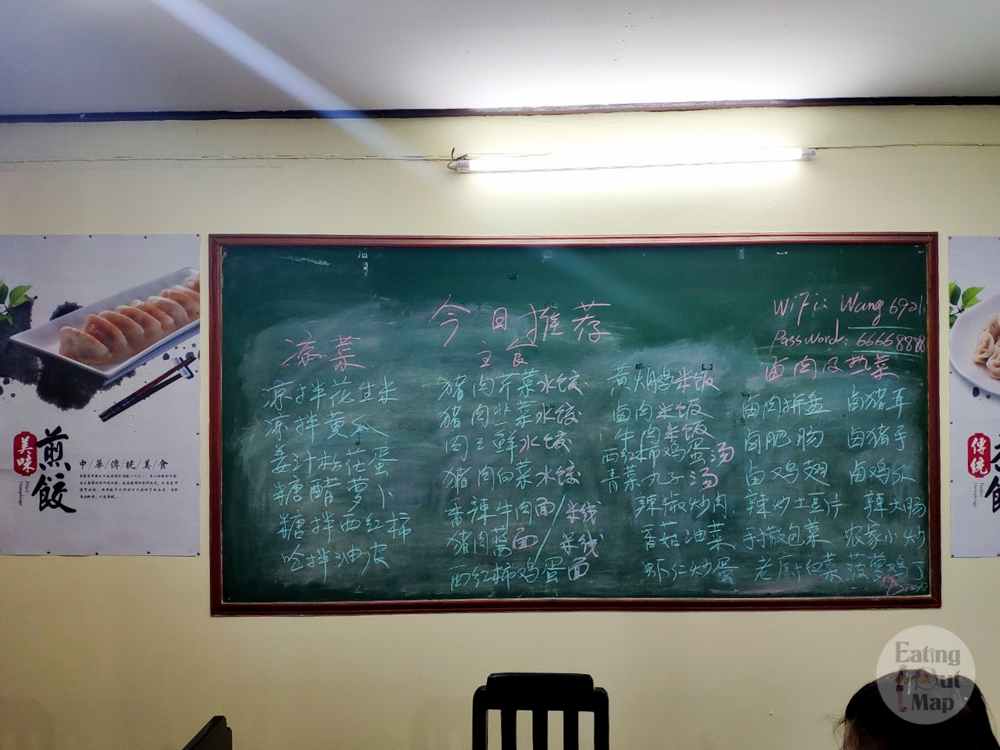 今日推荐
WiFi: Wang6921
Password: 66668888
凉菜
凉拌花生米
凉拌黄瓜
姜汁松花蛋
糖醋萝卜
糖拌西红柿
呛拌油皮
主食
猪肉芹菜水饺
猪肉韭菜水饺
肉三鲜水饺
猪肉白菜水饺
香辣牛肉面/米线
猪肉酱面/米线
西红柿鸡蛋面
黄焖鸡米饭
卤肉米饭
牛肉米饭
西红柿鸡蛋汤
青菜丸子汤
辣椒炒肉
香菇油菜
虾仁炒蛋
卤肉及热菜
卤肉拼盘 卤猪耳
卤肥肠 卤猪手
卤鸡翅 卤鸡爪
辣炒土豆片 辣大肠
手撕包菜 农家小炒
老厨白菜 菠萝鸡丁
美味
煎餃
中/華/傳/統/美/食
傳統
Eating Out Map